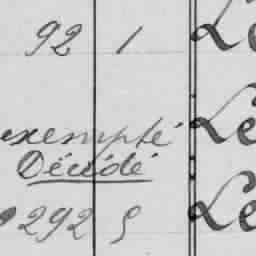 92 1 Le
exempté Le
Décédé
292 5 Le